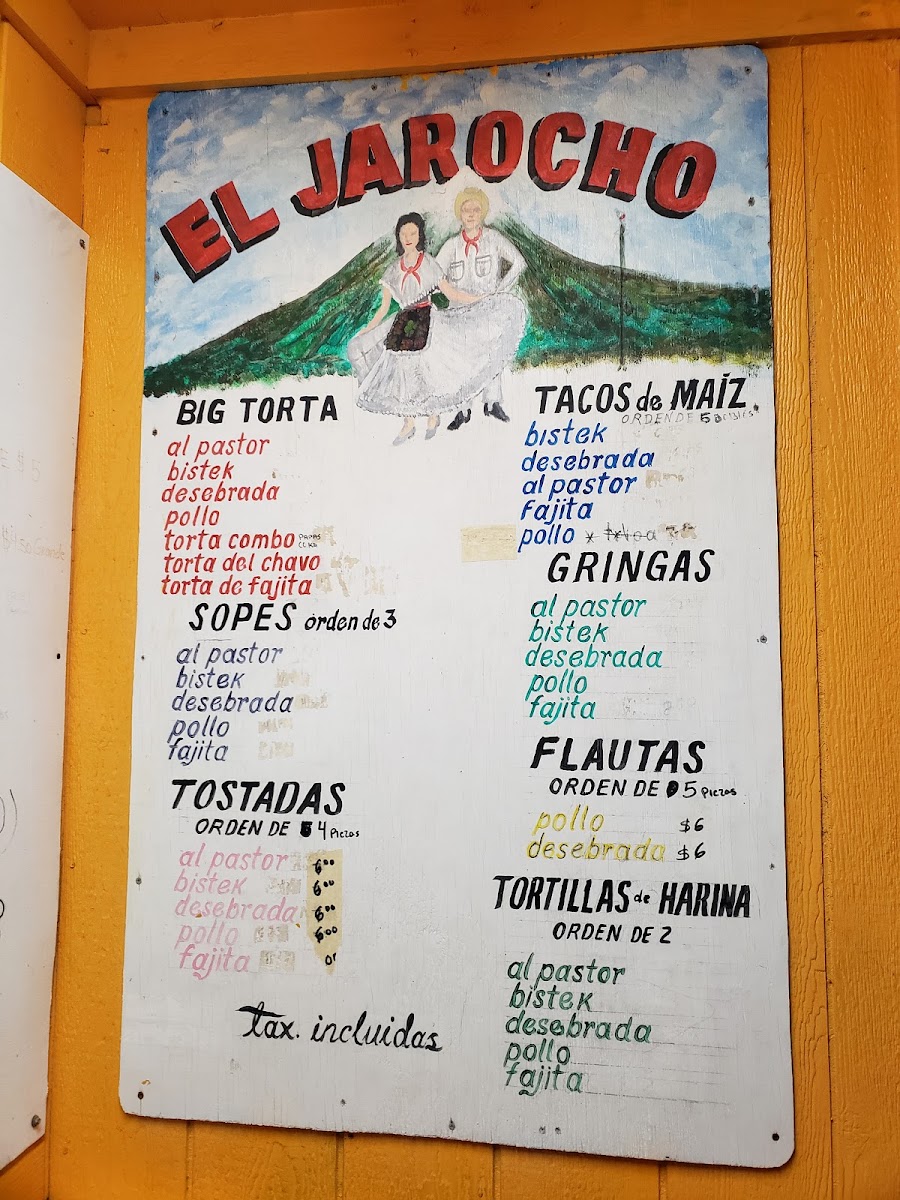 EL JAROCHO
BIG TORTA
al pastor
bistek
desebrada
pollo
torta combo
torta del chavo
torta de fajita
SOPES orden de 3
al pastor
bistek
desebrada
pollo
fajita
TOSTADAS
ORDEN DE 4 Piezas
al pastor 6.00
bistek 6.00
desebrada 6.00
pollo 6.00
fajita
tax. incluidas
TACOS de MAÍZ
ORDEN DE 5
bistek
desebrada
al pastor
fajita
pollo
GRINGAS
al pastor
bistek
desebrada
pollo
fajita
FLAUTAS
ORDEN DE 5 Piezas
pollo $6
desebrada $6
TORTILLAS de HARINA
ORDEN DE 2
al pastor
bistek
desebrada
pollo
fajita